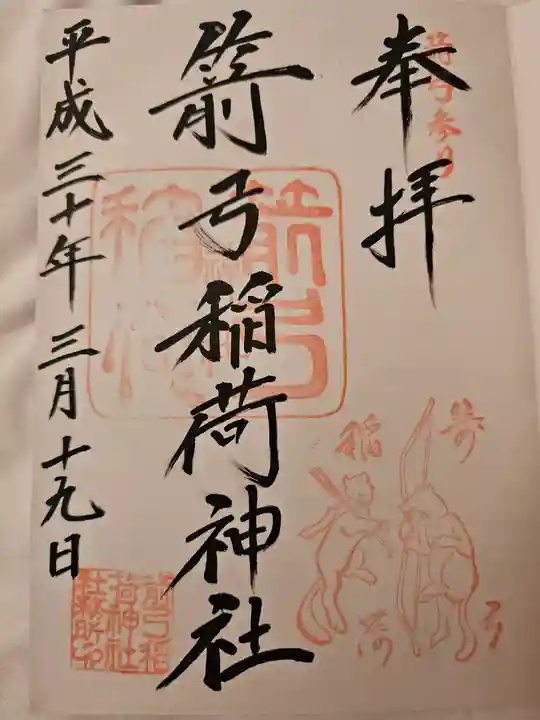 奉拝
箭弓稲荷神社
平成三十年三月十九日
箭弓
稲荷
箭弓稲
荷神社
社務所印